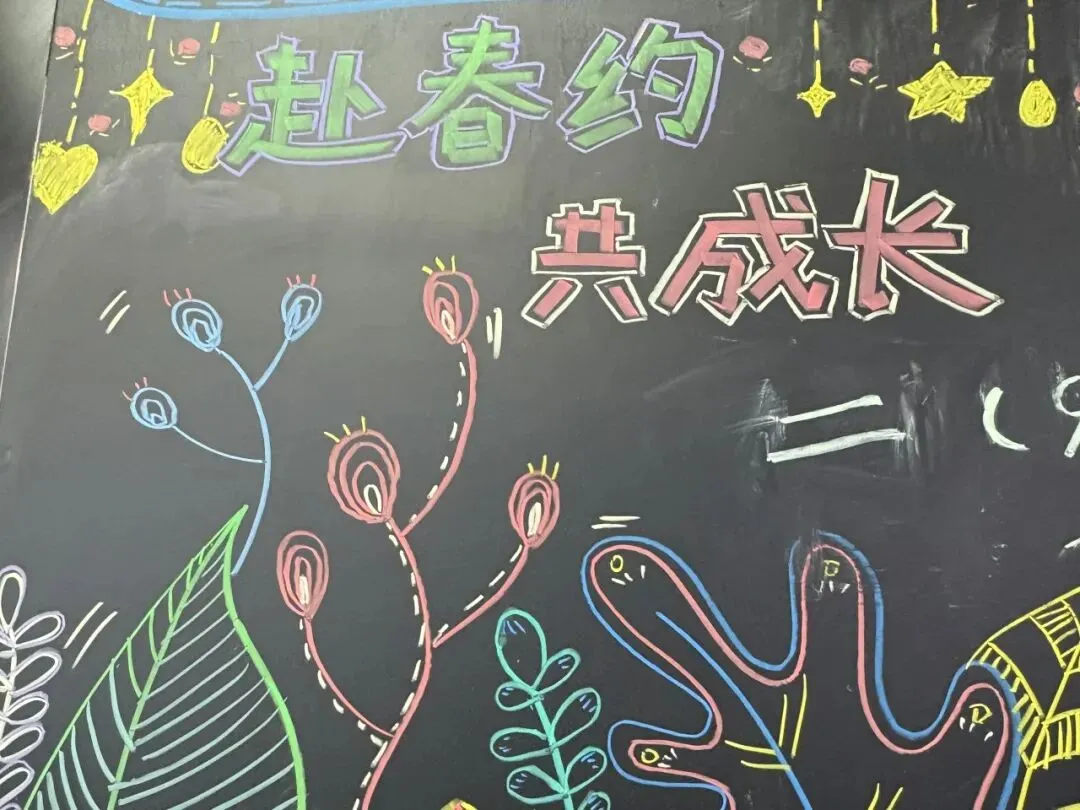 赴春约
共成长
二（